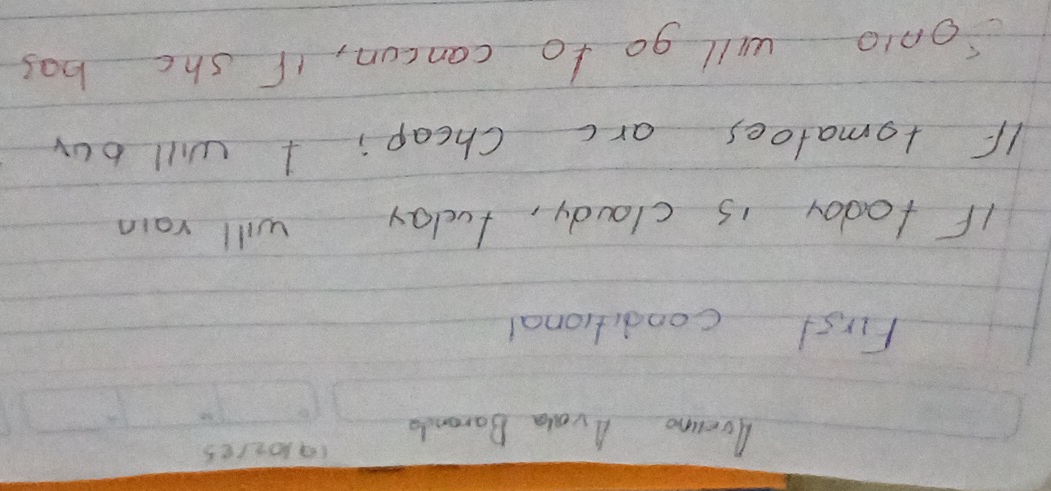 19102165
Avelino Avala Baranda
First conditional
If today is cloudy, tuday will rain
If tomatoes are cheap, I will buy
Sonia will go to cancun, if she has